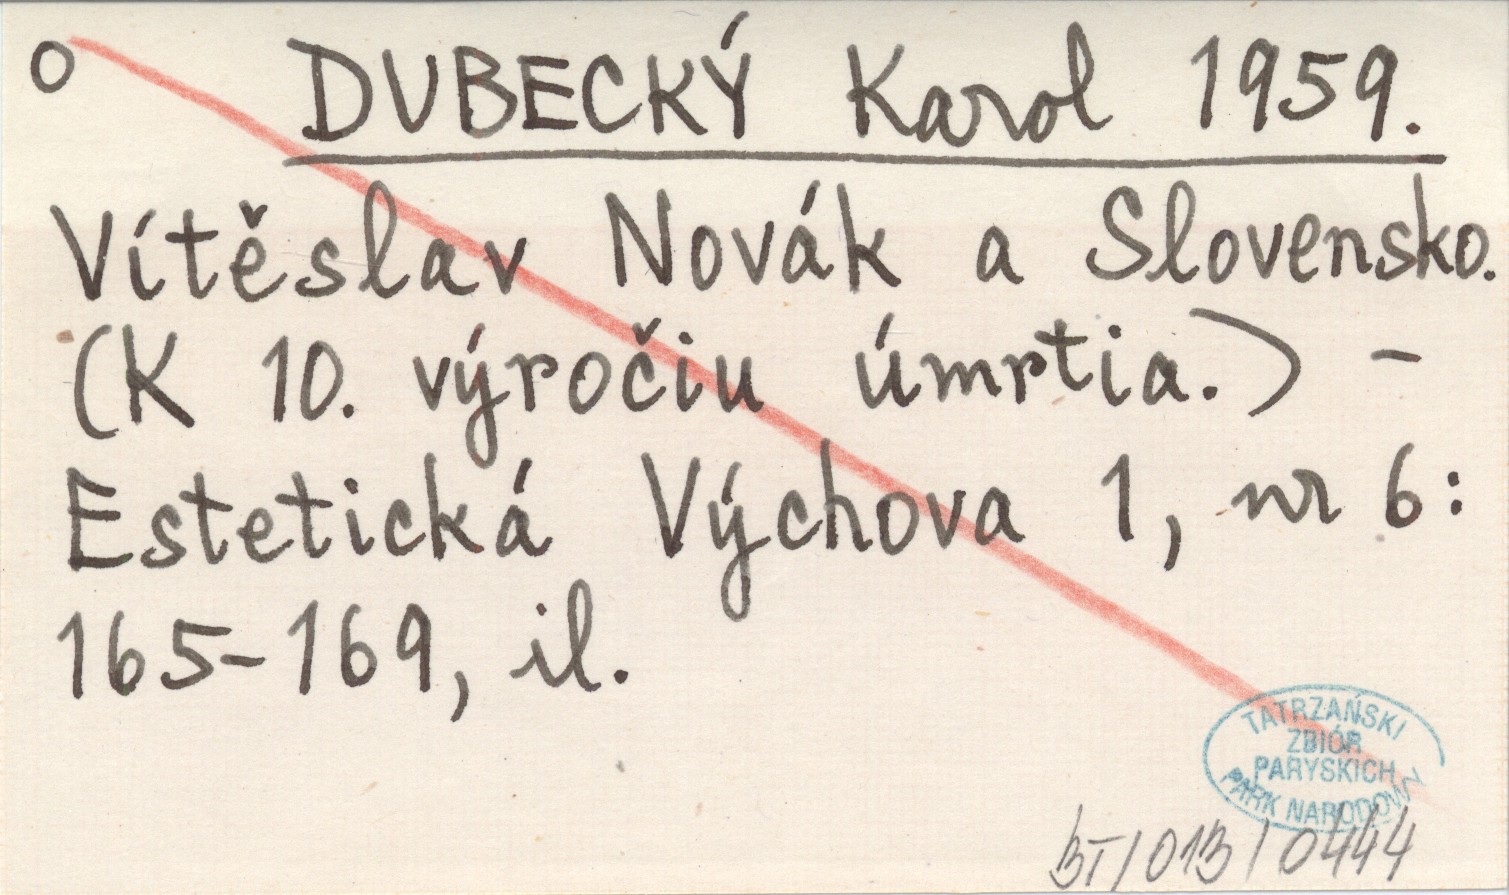 o DUBECKÝ Karol 1959.
Vítěslav Novák a Slovensko.
(K 10. výročiu úmrtia.) -
Estetická Výchova 1, nr 6:
165-169, il.
TATRZAŃSKI
ZBIÓR
PARYSKICH
PARK NARODOWY
BT/013/0444